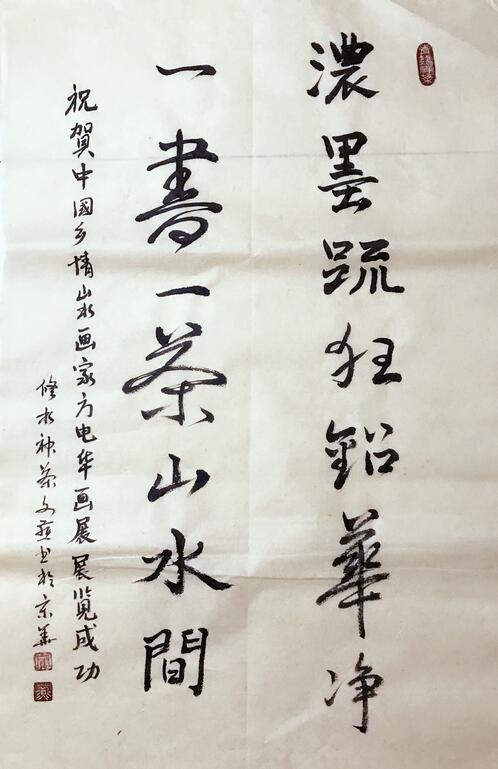 濃墨疏狂鉛華净
一書一茶山水間
祝賀中國乡情山水画家方电华画展展览成功
修水神茶文燕书於京华